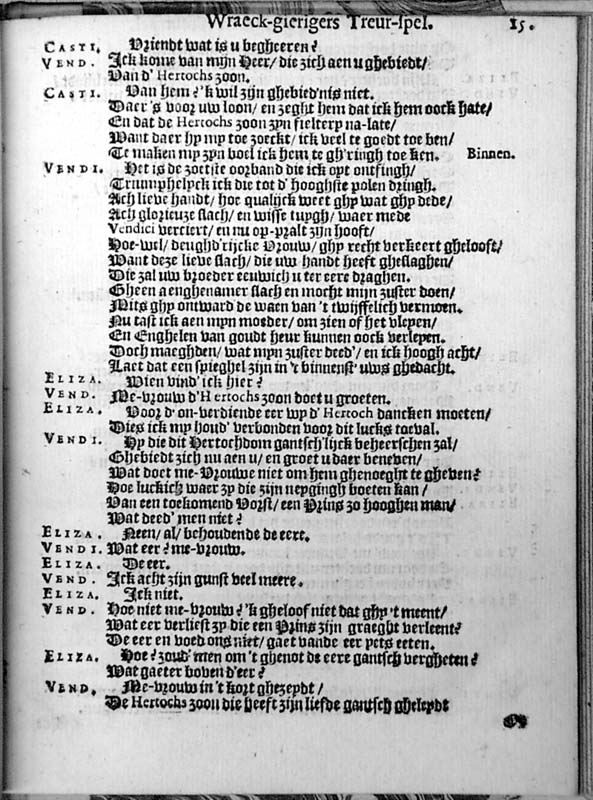 Wraeck-gierigers Treur-spel. 15.
CASTI. Vriendt wat is u begheeren?
VEND. Ick kome van mijn Heer/ die zich aen u ghebiedt/
Van d' Hertochs zoon.
CASTI. Van hem? 'k wil zijn ghebied'nis niet.
Daer 's voor uw loon/ en zeght hem dat ick hem oock hate/
En dat de Hertochs zoon zyn fielteryn na-late/
Want daer hy my toe zoeckt/ ick veel te goedt toe ben/
Te maken my zyn boel ick hem te gh'ringh toe ken. Binnen.
VENDI. Het is de zoetste oorband die ick oyt ontfingh/
Triumphelyck ick die tot d' hooghste polen dringh.
Ach lieve handt/ hoe qualijck weet ghy wat ghy dede/
Ach glorieuze slach/ en wisse tuygh/ waer mede
Vendici verciert/ en nu op-pralt zijn hooft/
Hoe-wel/ deughd'rijcke Vrouw/ ghy recht verkeert ghelooft/
Want deze lieve slach/ die uw handt heeft gheslaghen/
Die zal uw broeder eeuwich u ter eere draghen.
Gheen aenghenamer slach en mocht mijn zuster doen/
Mits ghy ontward de waen van 't twijffelich vermoen.
Nu tast ick aen myn moeder/ om zien of het vleyen/
En Enghelen van goudt heur kunnen oock verleyen.
Doch maeghden/ wat myn zuster deed'/ en ick hoogh acht/
Laet dat een spieghel zijn in 't binnenst' uws ghedacht.
ELIZA. Wien vind' ick hier?
VEND. Me-vrouw d'Hertochs zoon doet u groeten.
ELIZA. Voor d' on-verdiende eer wy d' Hertoch dancken moeten/
Dies ick my houd' verbonden voor dit lucks toeval.
VENDI. Hy die dit Hertochdom gantsch'lijck beheerschen zal/
Ghebiedt zich nu aen u/ en groet u daer beneven/
Wat doet me-Vrouwe niet om hem ghenoeght te gheven?
Hoe luckich waer zy die zijn neygingh boeten kan/
Van een toekomend Vorst/ een Prins zo hooghen man/
Wat deed' men niet?
ELIZA. Neen/ al/ behoudende de eere.
VENDI. Wat eer? me-vrouw.
ELIZA. De eer.
VEND. Ick acht zijn gunst veel meere.
ELIZA. Ick niet.
VEND. Hoe niet me-vrouw? 'k gheloof niet dat ghy 't meent/
Wat eer verliest zy die een Prins zijn graeght verleent?
De eer en voed ons niet/ gaet vande eer yets eeten.
ELIZA. Hoe? zoud' men om 't ghenot de eere gantsch vergheten?
Wat gaeter boven d'eer?
VEND. Me-vrouw in 't kort ghezeydt/
De Hertochs zoon die heeft zijn liefde gantsch gheleydt
Op